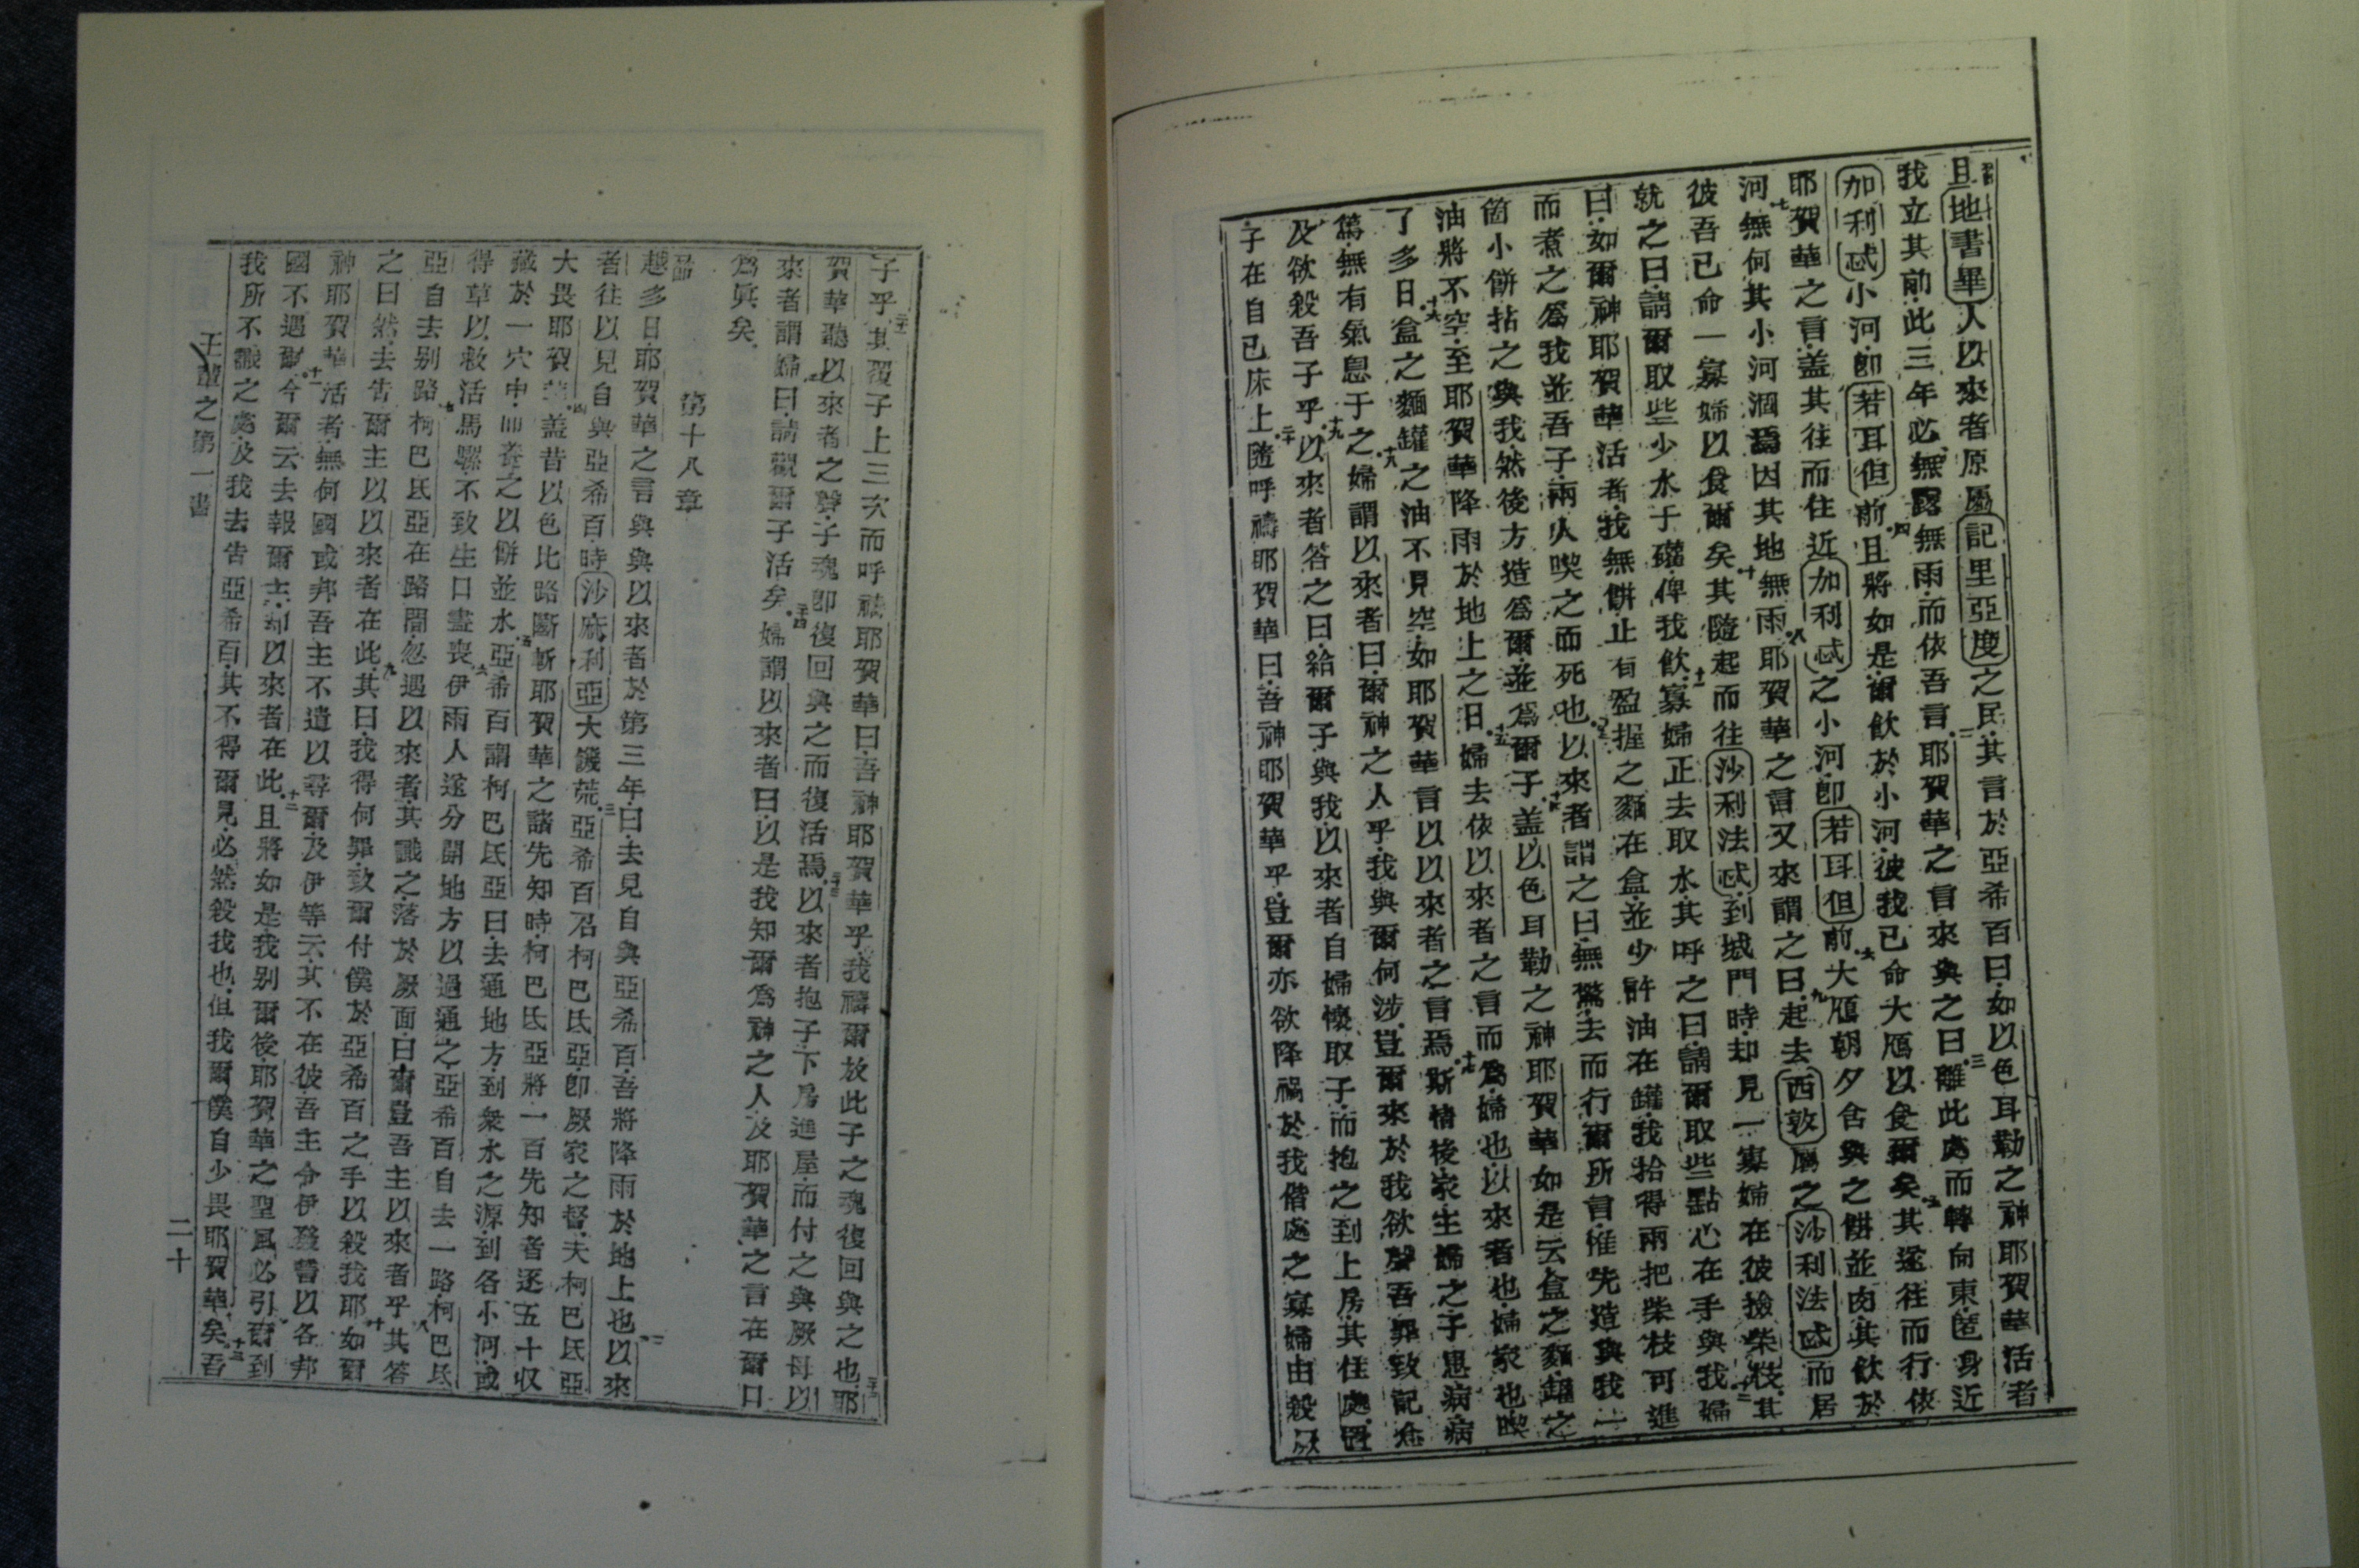 且地書畢人以來者原屬記里亞度之民其言於亞希百曰如以色耳勒之神耶賀華活者
我立其前此三年必無露無雨而依吾言耶賀華之言來與之曰離此處而轉向東匿身近
加利忒小河即若耳但前且將如是爾飲於小河彼我已命大鴈以食爾矣其遂往而行依
耶賀華之言蓋其往而住近加利忒之小河即若耳但前大鴈朝夕舍與之餅並肉其飲於
河無何其小河涸焉因其地無雨耶賀華之言又來謂之曰起去西敦屬之沙利法忒而居
彼吾已命一寡婦以食爾矣其隨起而往沙利法忒到城門時却見一寡婦在彼撿柴枝其
就之曰請爾取些少水于礶俾我飲寡婦正去取水其呼之曰請爾取些點心在手與我婦
曰如爾神耶賀華活者我無餅止有盈握之麵在盒並少許油在罐我拾得兩把柴枝可進
而煮之為我並吾子兩人喫之而死也以來者謂之曰無驚去而行爾所言惟先造與我一
箇小餅拈之與我然後方造為爾並為爾子蓋以色耳勒之神耶賀華如是云盒之麵罐之
油將不空至耶賀華降雨於地上之日婦去依以來者之言而為婦也以來者也婦家也喫
了多日盒之麵罐之油不見空如耶賀華言以以來者之言焉斯情後家生婦之子患病病
為無有氣息于之婦謂以來者曰爾神之人乎我與爾何涉豈爾來於我欲聲吾罪致記念
及欲殺吾子乎以來者答之曰給爾子與我以來者自婦懷取子而抱之到上房其住處置
子在自己床上隨呼禱耶賀華曰吾神耶賀華乎豈爾亦欲降禍於我偕處之寡婦由殺厥
子乎其覆子上三次而呼禱耶賀華曰吾神耶賀華乎我禱爾放此子之魂復回與之也耶
賀華聽以來者之聲子魂即復回與之而復活焉以來者抱子下房進屋而付之與厥母以
來者謂婦曰請觀爾子活矣婦謂以來者曰以是我知爾為神之人及耶賀華之言在爾口
為眞矣
第十八章
越多日耶賀華之言與與以來者於第三年曰去見自與亞希百吾將降雨於地上也以來
者往以見自與亞希百時沙庥利亞大饑荒亞希百召柯巴氐亞即厥家之督夫柯巴氐亞
大畏耶賀華蓋昔以色比路斷斬耶賀華之諸先知時柯巴氐亞將一百先知者逐五十収
藏於一穴中而養之以餅並水亞希百謂柯巴氐亞曰去通地方到衆水之源到各小河或
得草以救活馬騾不致生口盡喪伊兩人遂分開地方以過通之亞希百自去一路柯巴氐
亞自去别路柯巴氐亞在路間忽遇以來者其識之落於厥面曰爾豈吾主以來者乎其答
之曰然去吿爾主以以來者在此其曰我得何罪致爾付僕於亞希百之手以殺我耶如爾
神耶賀華活者無何國或邦吾主不遣以尋爾及伊等云其不在彼吾主令伊發誓以各邦
國不遇爾今爾云去報爾主却以來者在此且將如是我别爾後耶賀華之聖風必引爾到
我所不識之處及我去吿亞希百其不得爾見必然殺我也但我爾僕自少畏耶賀華矣吾
王輩之第一書
二十